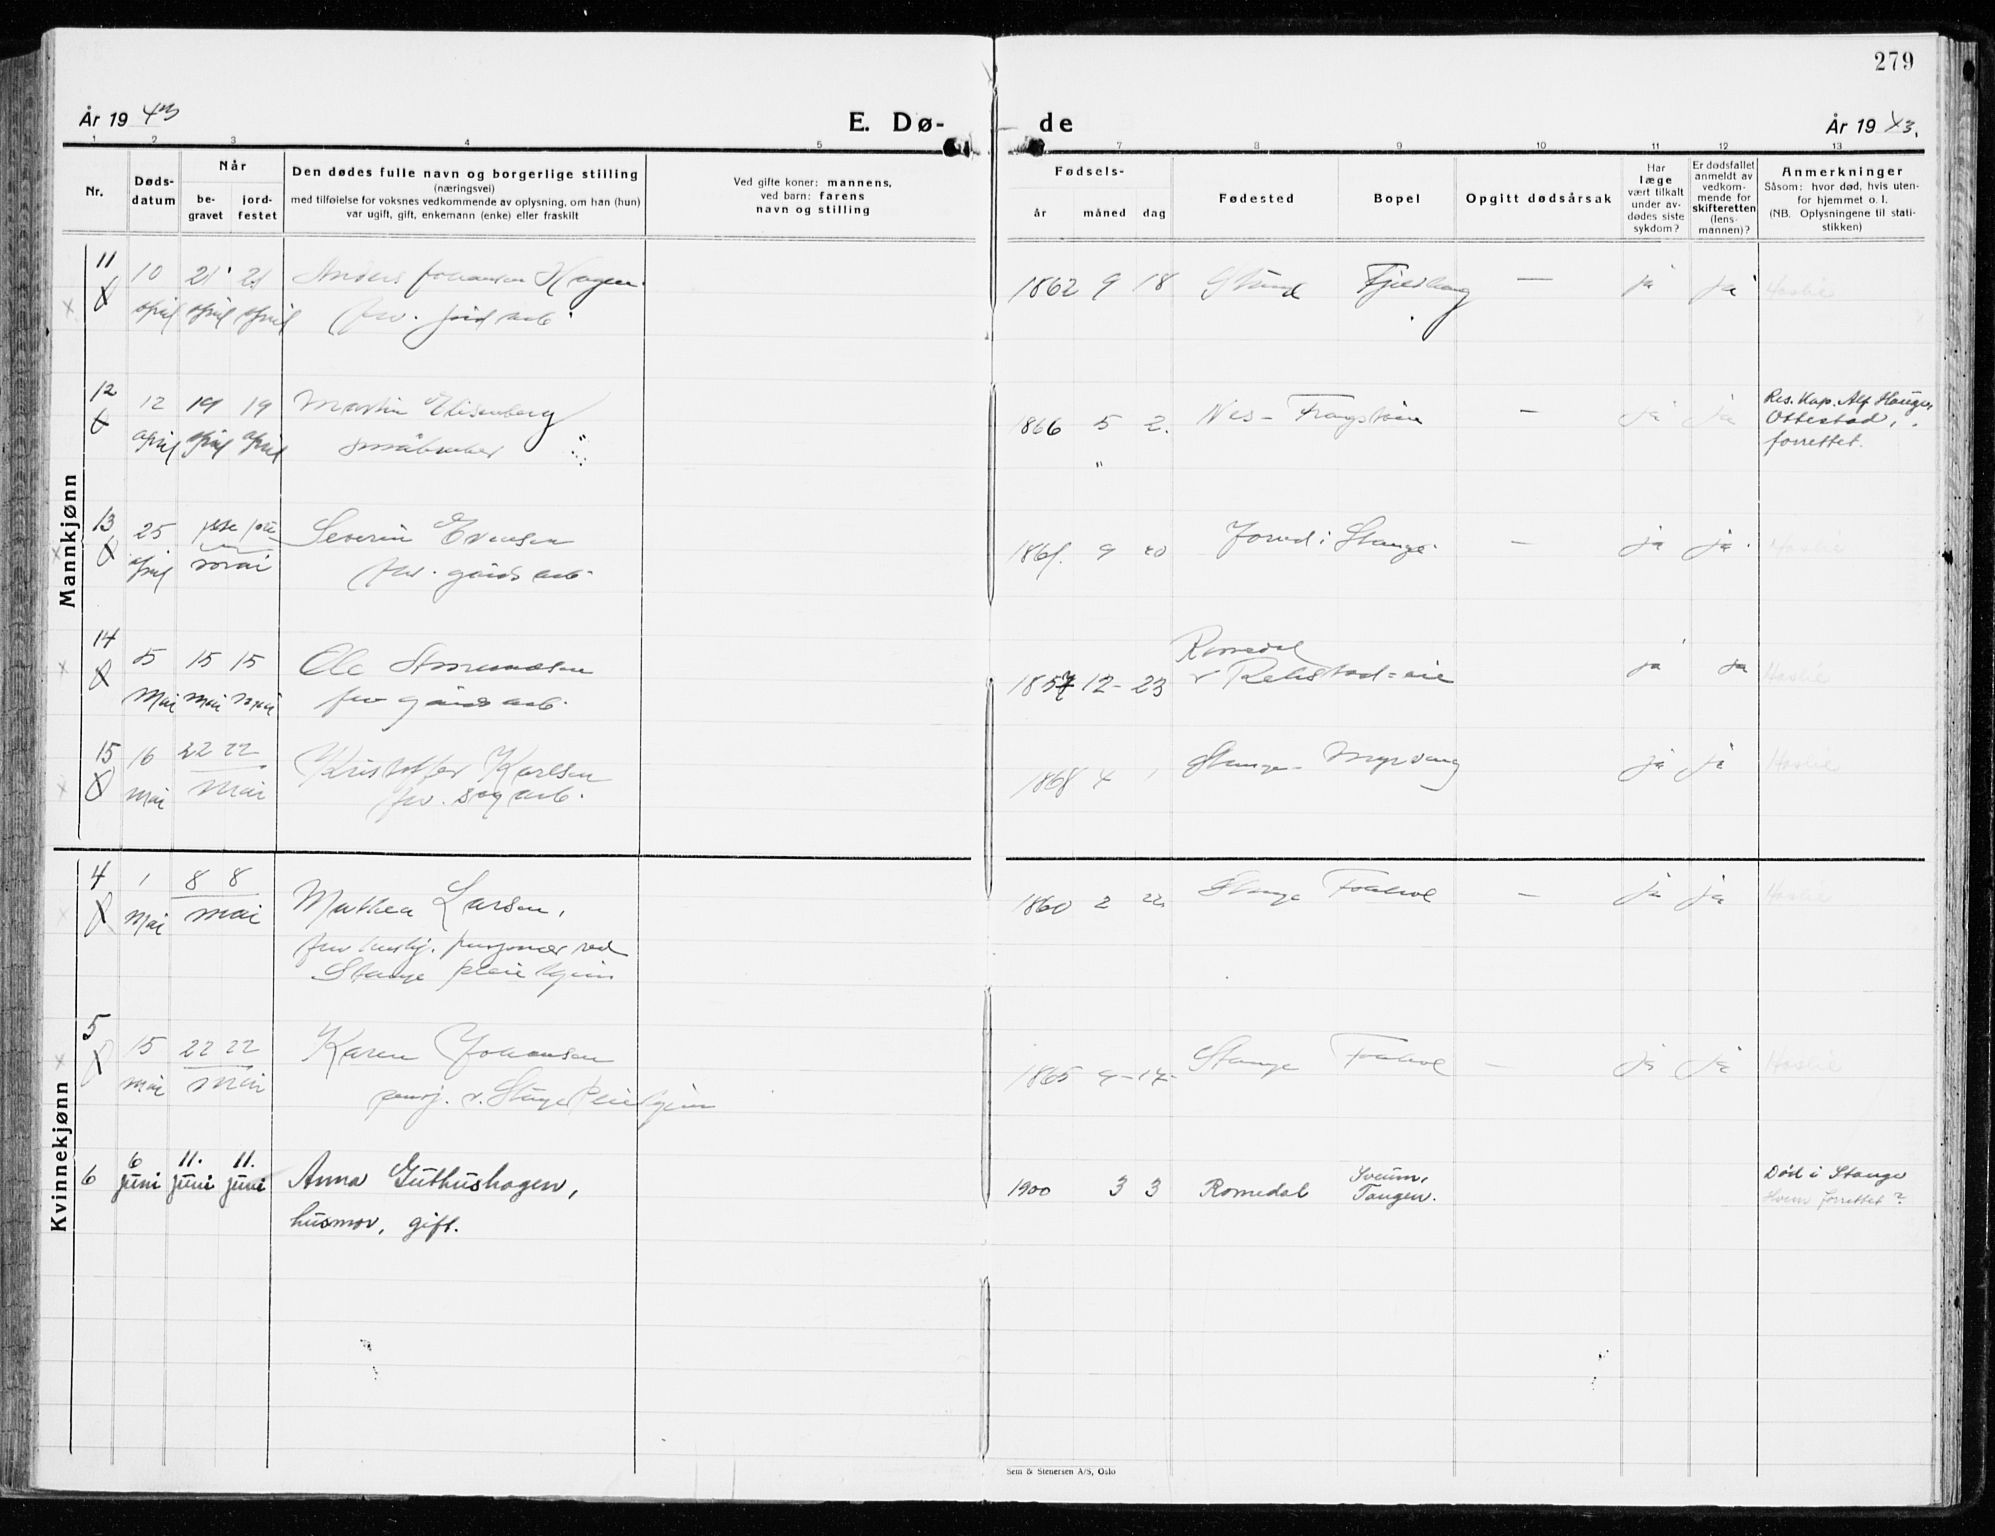 279
År 19 43
E. Dø-
de
År 19 43.
1 2 3 4 5 7 8 9 10 11 12 13
Nr.
Døds-
datum
Når
be-
gravet
jord-
festet
Den dødes fulle navn og borgerlige stilling
(næringsvei)
med tilføielse for voksnes vedkommende av oplysning, om han (hun)
var ugift, gift, enkemann (enke) eller fraskilt
Ved gifte koner: mannens,
ved barn: farens
navn og stilling
Fødsels-
år måned dag
Fødested
Bopel
Opgitt dødsårsak
Har
læge
vært tilkalt
under av-
dødes siste
sykdom?
Er dødsfallet
anmeldt av
vedkom-
mende for
skifteretten
(lens-
mannen)?
Anmerkninger
Såsom: hvor død, hvis uten-
for hjemmet o. l.
(NB. Oplysningene til stati-
stikken)
Mannkjønn
11 10 21 21 Anders Johansen Hagen 1862 9 18 — ja ja Haslie
april april april fhv. jord arb.
12 12 19 19 Martin Elisenberg 1866 5 2. Nes — ja ja Res. Kap. Alf Hauge,
april april april småbruker " Ottestad,
forrettet.
13 25 Severin Evensen 9 20 i Stange — ja ja Haslie
april mai fhv. gårds arb.
14 15 15 15 Ole 1857 12 - 23 Romedal ja ja Haslie
mai mai mai fhv gårds arb.
15 16 22 22 Kristoffer Karlsen 1868 4 1 Stange Myrvang ja ja Haslie
mai mai fhv. sag arb.
Kvinnekjønn
4 1 8 8 Mathea Larsen, 1860 2 22 Stange — ja ja Haslie
mai mai fhv hushj. pensjonær ved
Stange pleiehjem
5 15 22 22 Karen Johansen 1865 Stange — ja ja Haslie
mai mai pensj. v. Stange Pleiehjem
6 6 11. 11. Anna Guthushagen, 1900 3 3 Romedal Sveum, Død i Stange
juni juni juni husmor, gift. Tangen. Hvem forrettet?
Sem & Stenersen A/S, Oslo